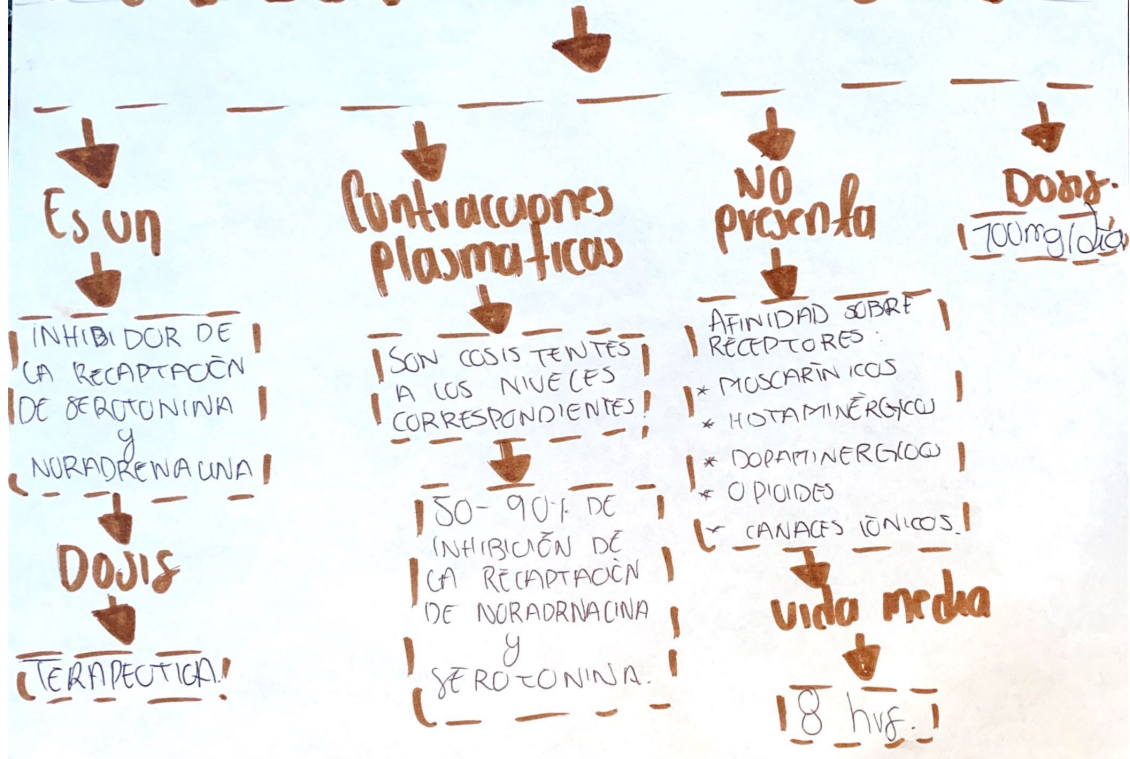 Es un
INHIBIDOR DE
LA RECAPTACIÓN
DE SEROTONINA
y
NORADRENALINA
Dosis
TERAPEUTICA.
Contracciones
plasmaticas
SON COSISTENTES
A LOS NIVELES
CORRESPONDIENTES.
50-90% DE
INHIBICIÓN DE
LA RECAPTACIÓN
DE NORADRNALINA
y
SEROTONINA.
NO
presenta
AFINIDAD SOBRE
RECEPTORES:
* MOSCARÍNICOS
* HOTAMINÉRGICO
* DOPAMINERGICO
* OPIOIDES
* CANALES IÓNICOS.
vida media
8 hrs.
Dosis.
100mg/día